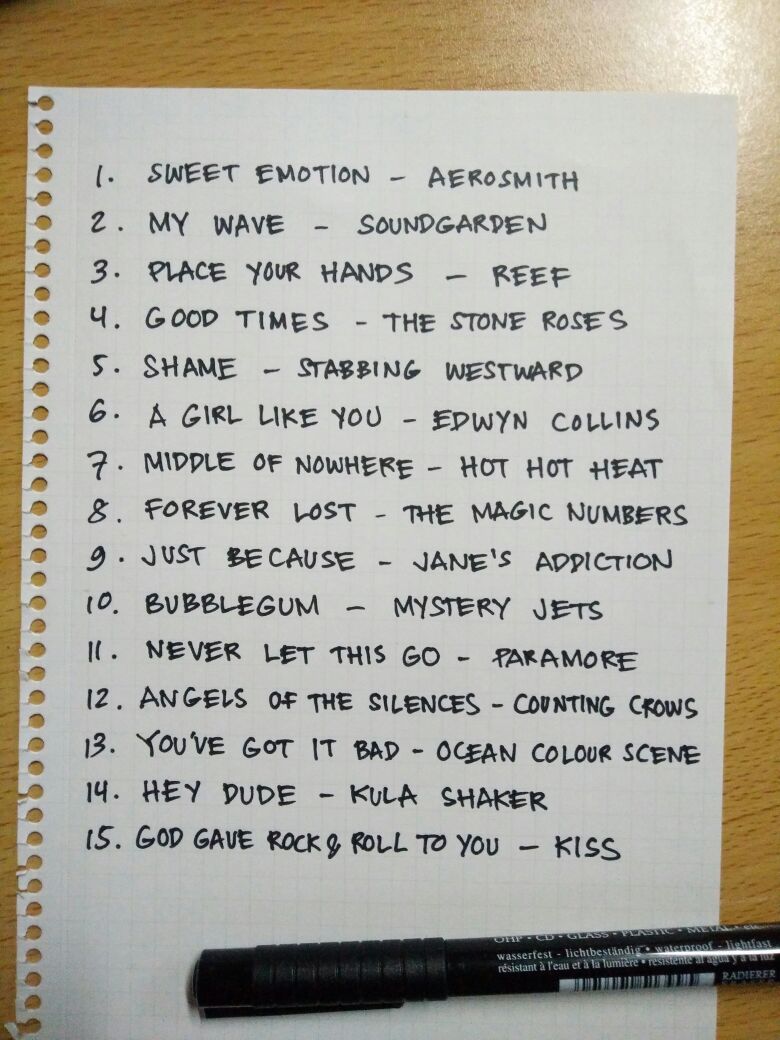 1. SWEET EMOTION - AEROSMITH
2. MY WAVE - SOUNDGARDEN
3. PLACE YOUR HANDS - REEF
4. GOOD TIMES - THE STONE ROSES
5. SHAME - STABBING WESTWARD
6. A GIRL LIKE YOU - EDWYN COLLINS
7. MIDDLE OF NOWHERE - HOT HOT HEAT
8. FOREVER LOST - THE MAGIC NUMBERS
9. JUST BECAUSE - JANE'S ADDICTION
10. BUBBLEGUM - MYSTERY JETS
11. NEVER LET THIS GO - PARAMORE
12. ANGELS OF THE SILENCES - COUNTING CROWS
13. YOU'VE GOT IT BAD - OCEAN COLOUR SCENE
14. HEY DUDE - KULA SHAKER
15. GOD GAVE ROCK & ROLL TO YOU - KISS
OHP • CD • GLASS • PLASTIC • METAL •
wasserfest - lichtbeständig • waterproof - lightfast
résistant à l'eau et à la lumière • resistente al agua y a la luz
RADIERER